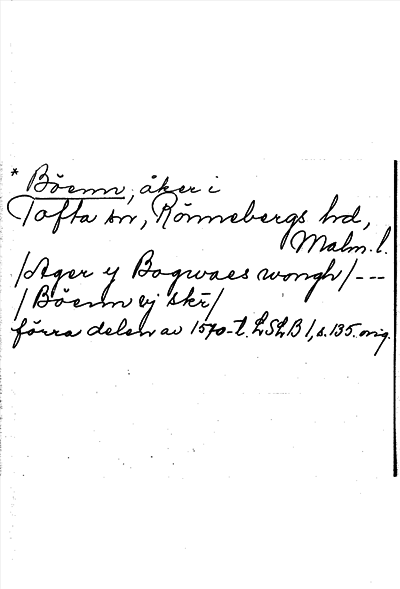 * Böenn, åker i
Tofta sn, Rönnebergs hd,
Malm. l.
/Ager y Bogwaes wongh/ ---
/Böenn ej skr/
förra delen av 1570-t. LSLB 1, s. 135. orig.